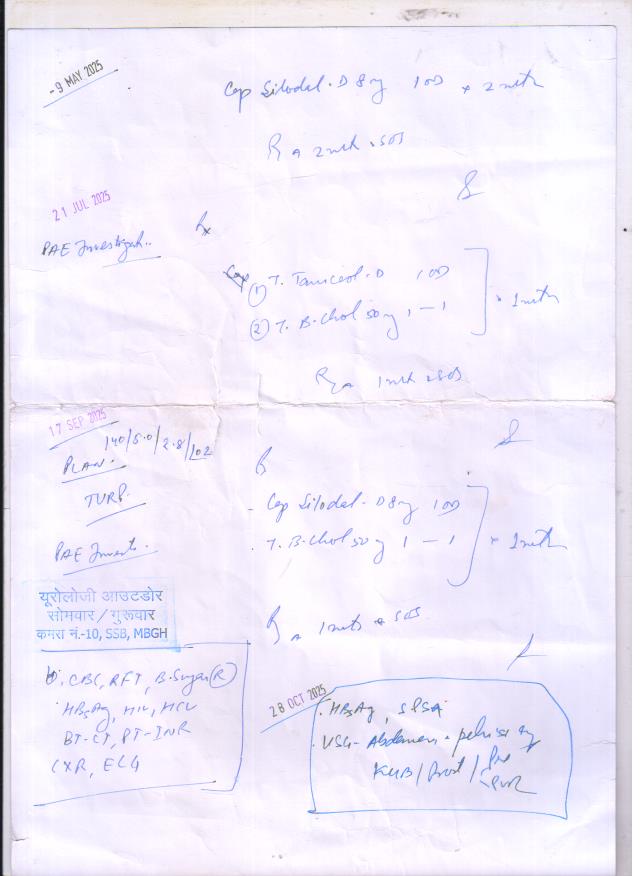 - 9 MAY 2025
Cap Silodal-D 8mg 1OD x 2 mth
R A 2 mth + SOS
21 JUL 2025
Rx
PAE Investigat..
① T. D 1OD
② T. B-Chol 50mg 1-1
x 1 mth
R A 1 mth + SOS
17 SEP 2025
140/5.0/2.8/102
PLAN.
TURP.
PAE Invests.
R
- Cap Silodal-D 8mg 1OD
. T. B-Chol 50mg 1-1
x 1 mth
R A 1 mth + SOS
यूरोलोजी आउटडोर
सोमवार / गुरूवार
कमरा नं.-10, SSB, MBGH
CBC, RFT, B.Sugar (R)
HBsAg, HIV, HCV
BT-CT, PT-INR
CXR, ECG
28 OCT 2025
. HBsAg, S.PSA
. USG- Abdomen + pelvis
KUB/Prost/Pre
-PVR